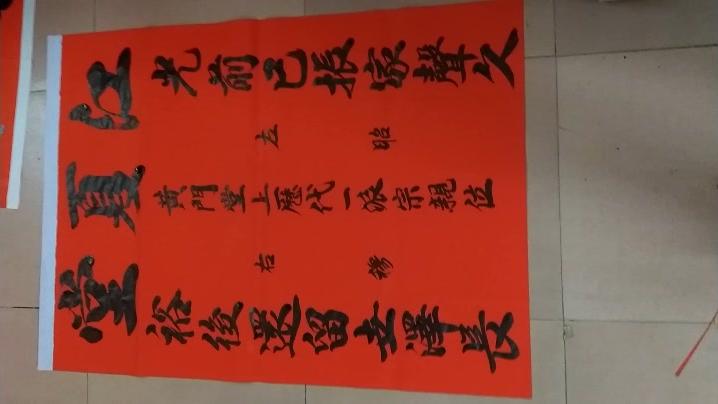 江夏堂
光前已振家聲久
左昭
黄門堂上歷代一派宗親位
右穆
裕後還留世澤長